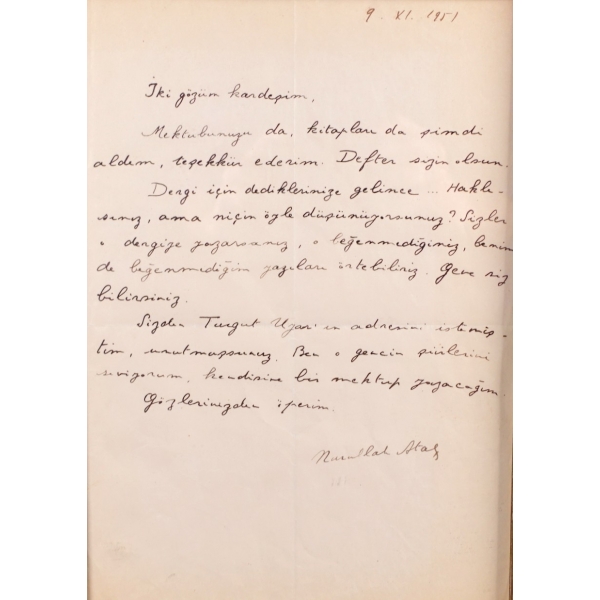 9. XI. 1951
İki gözüm kardeşim,
Mektubunuzu da, kitapları da şimdi
aldım, teşekkür ederim. Defter sizin olsun.
Dergi için dediklerinize gelince ... Haklı-
sınız, ama niçin öyle düşünüyorsunuz? Sizler
o dergiye yazarsanız, o beğenmediğiniz, benim
de beğenmediğim yazıları örtebiliriz. Gene siz
bilirsiniz.
Sizden Turgut Uyar'ın adresini istemiş-
tim, unutmuşsunuz. Ben o gencin şiirlerini
seviyorum, kendisine bir mektup yazacağım.
Gözlerinizden öperim.
Nurullah Ataç